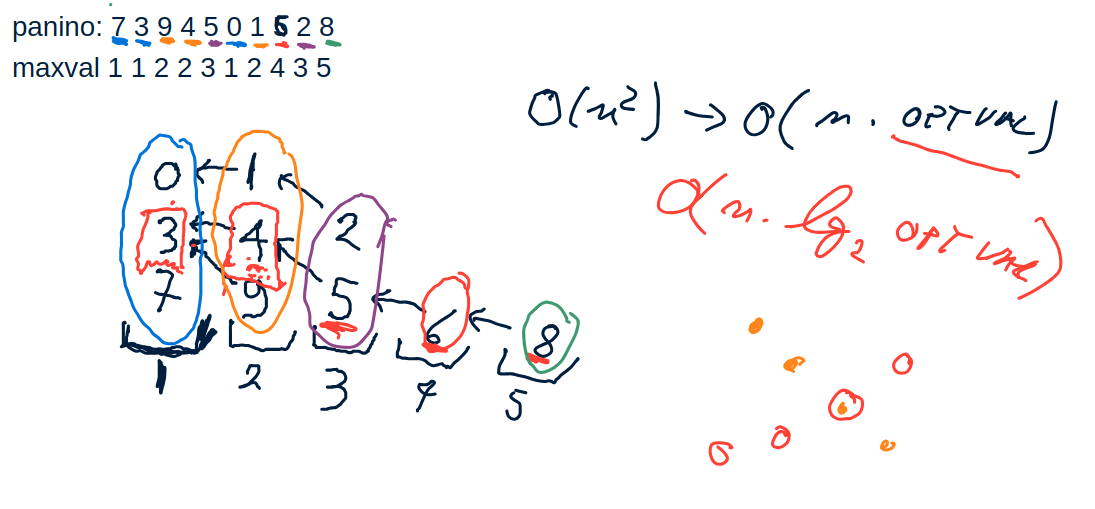 panino: 7 3 9 4 5 0 1 6 2 8
maxval 1 1 2 2 3 1 2 4 3 5
O(n²) → O(n · OPTVAL)
O(n · lg₂ OPTVAL)
0 1
3 4 2
7 9 5 6 8
1 2 3 4 5